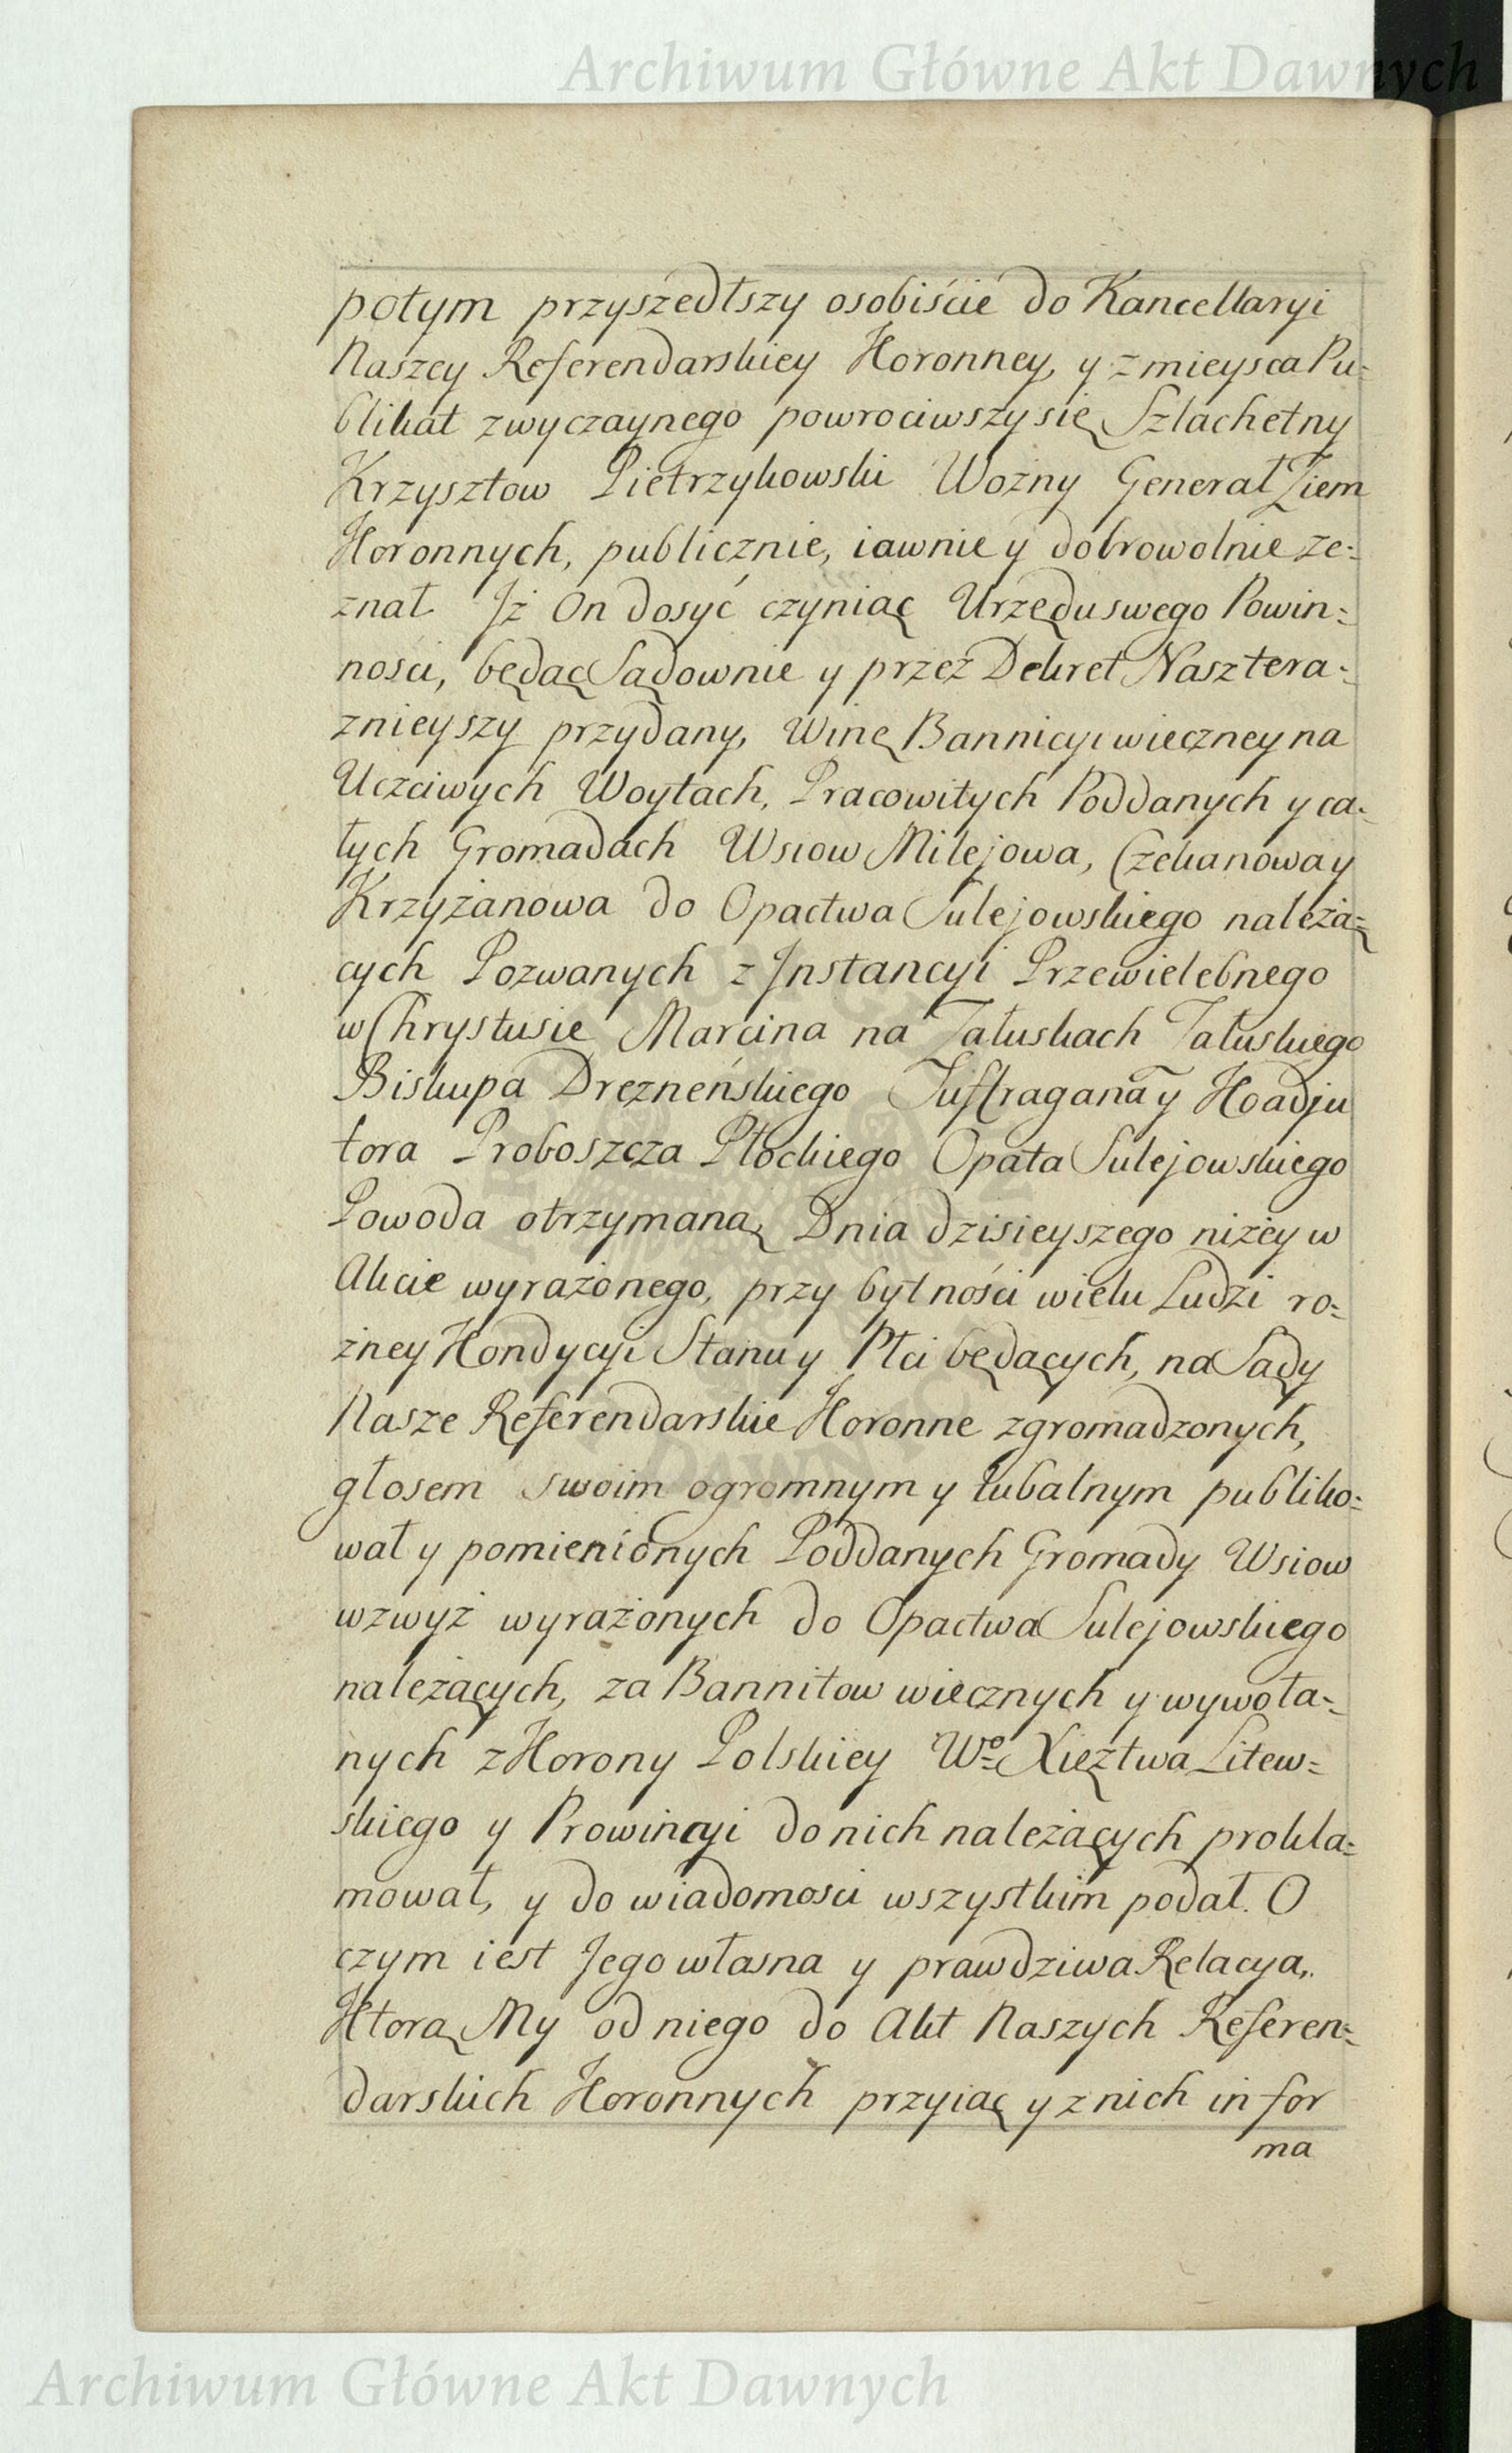 Archiwum Główne Akt Dawnych
potym przyszedłszy osobiście do Kancellaryi
Naszey Referendarskiey Koronney, y z mieysca Pu=
blikat zwyczaynego powrociwszy się Szlachetny
Krzysztow Pietrzykowski Woźny Generał Ziem
Koronnych, publicznie, iawnie y dobrowolnie ze=
znał. Jż On dosyć czyniąc Urzędu swego Powin=
ności, będąc Sądownie y przez Dekret Nasz tera=
znieyszy przydany, Winę Bannicyi wieczney na
Uczciwych Woytach, Pracowitych Poddanych y ca=
łych Gromadach Wsiow Milejowa, Czekanowa y
Krzyżanowa do Opactwa Sulejowskiego należą=
cych Pozwanych z Jnstancyi Przewielebnego
w Chrystusie Marcina na Załuskach Załuskiego
Biskupa Drezneńskiego Suffragana y Koadju
tora Proboszcza Płockiego Opata Sulejowskiego
Powoda otrzymaną, Dnia dzisieyszego niżey w
Akcie wyrażonego, przy bytności wielu Ludzi ro=
żney Kondycyi Stanu y Płci będących, na Sądy
Nasze Referendarskie Koronne zgromadzonych,
głosem swoim ogromnym y tubalnym publiko=
wał y pomienionych Poddanych Gromady Wsiow
wzwyż wyrażonych do Opactwa Sulejowskiego
należących, za Bannitow wiecznych y wywoła=
nych z Korony Polskiey Wo Xięztwa Litew=
skiego y Prowincyi do nich należących prokla=
mował, y do wiadomości wszystkim podał. O
czym iest Jego własna y prawdziwa Relacya,
Ktorą My od niego do Akt Naszych Referen=
darskich Koronnych przyiąć y z nich in for
ma
Archiwum Główne Akt Dawnych